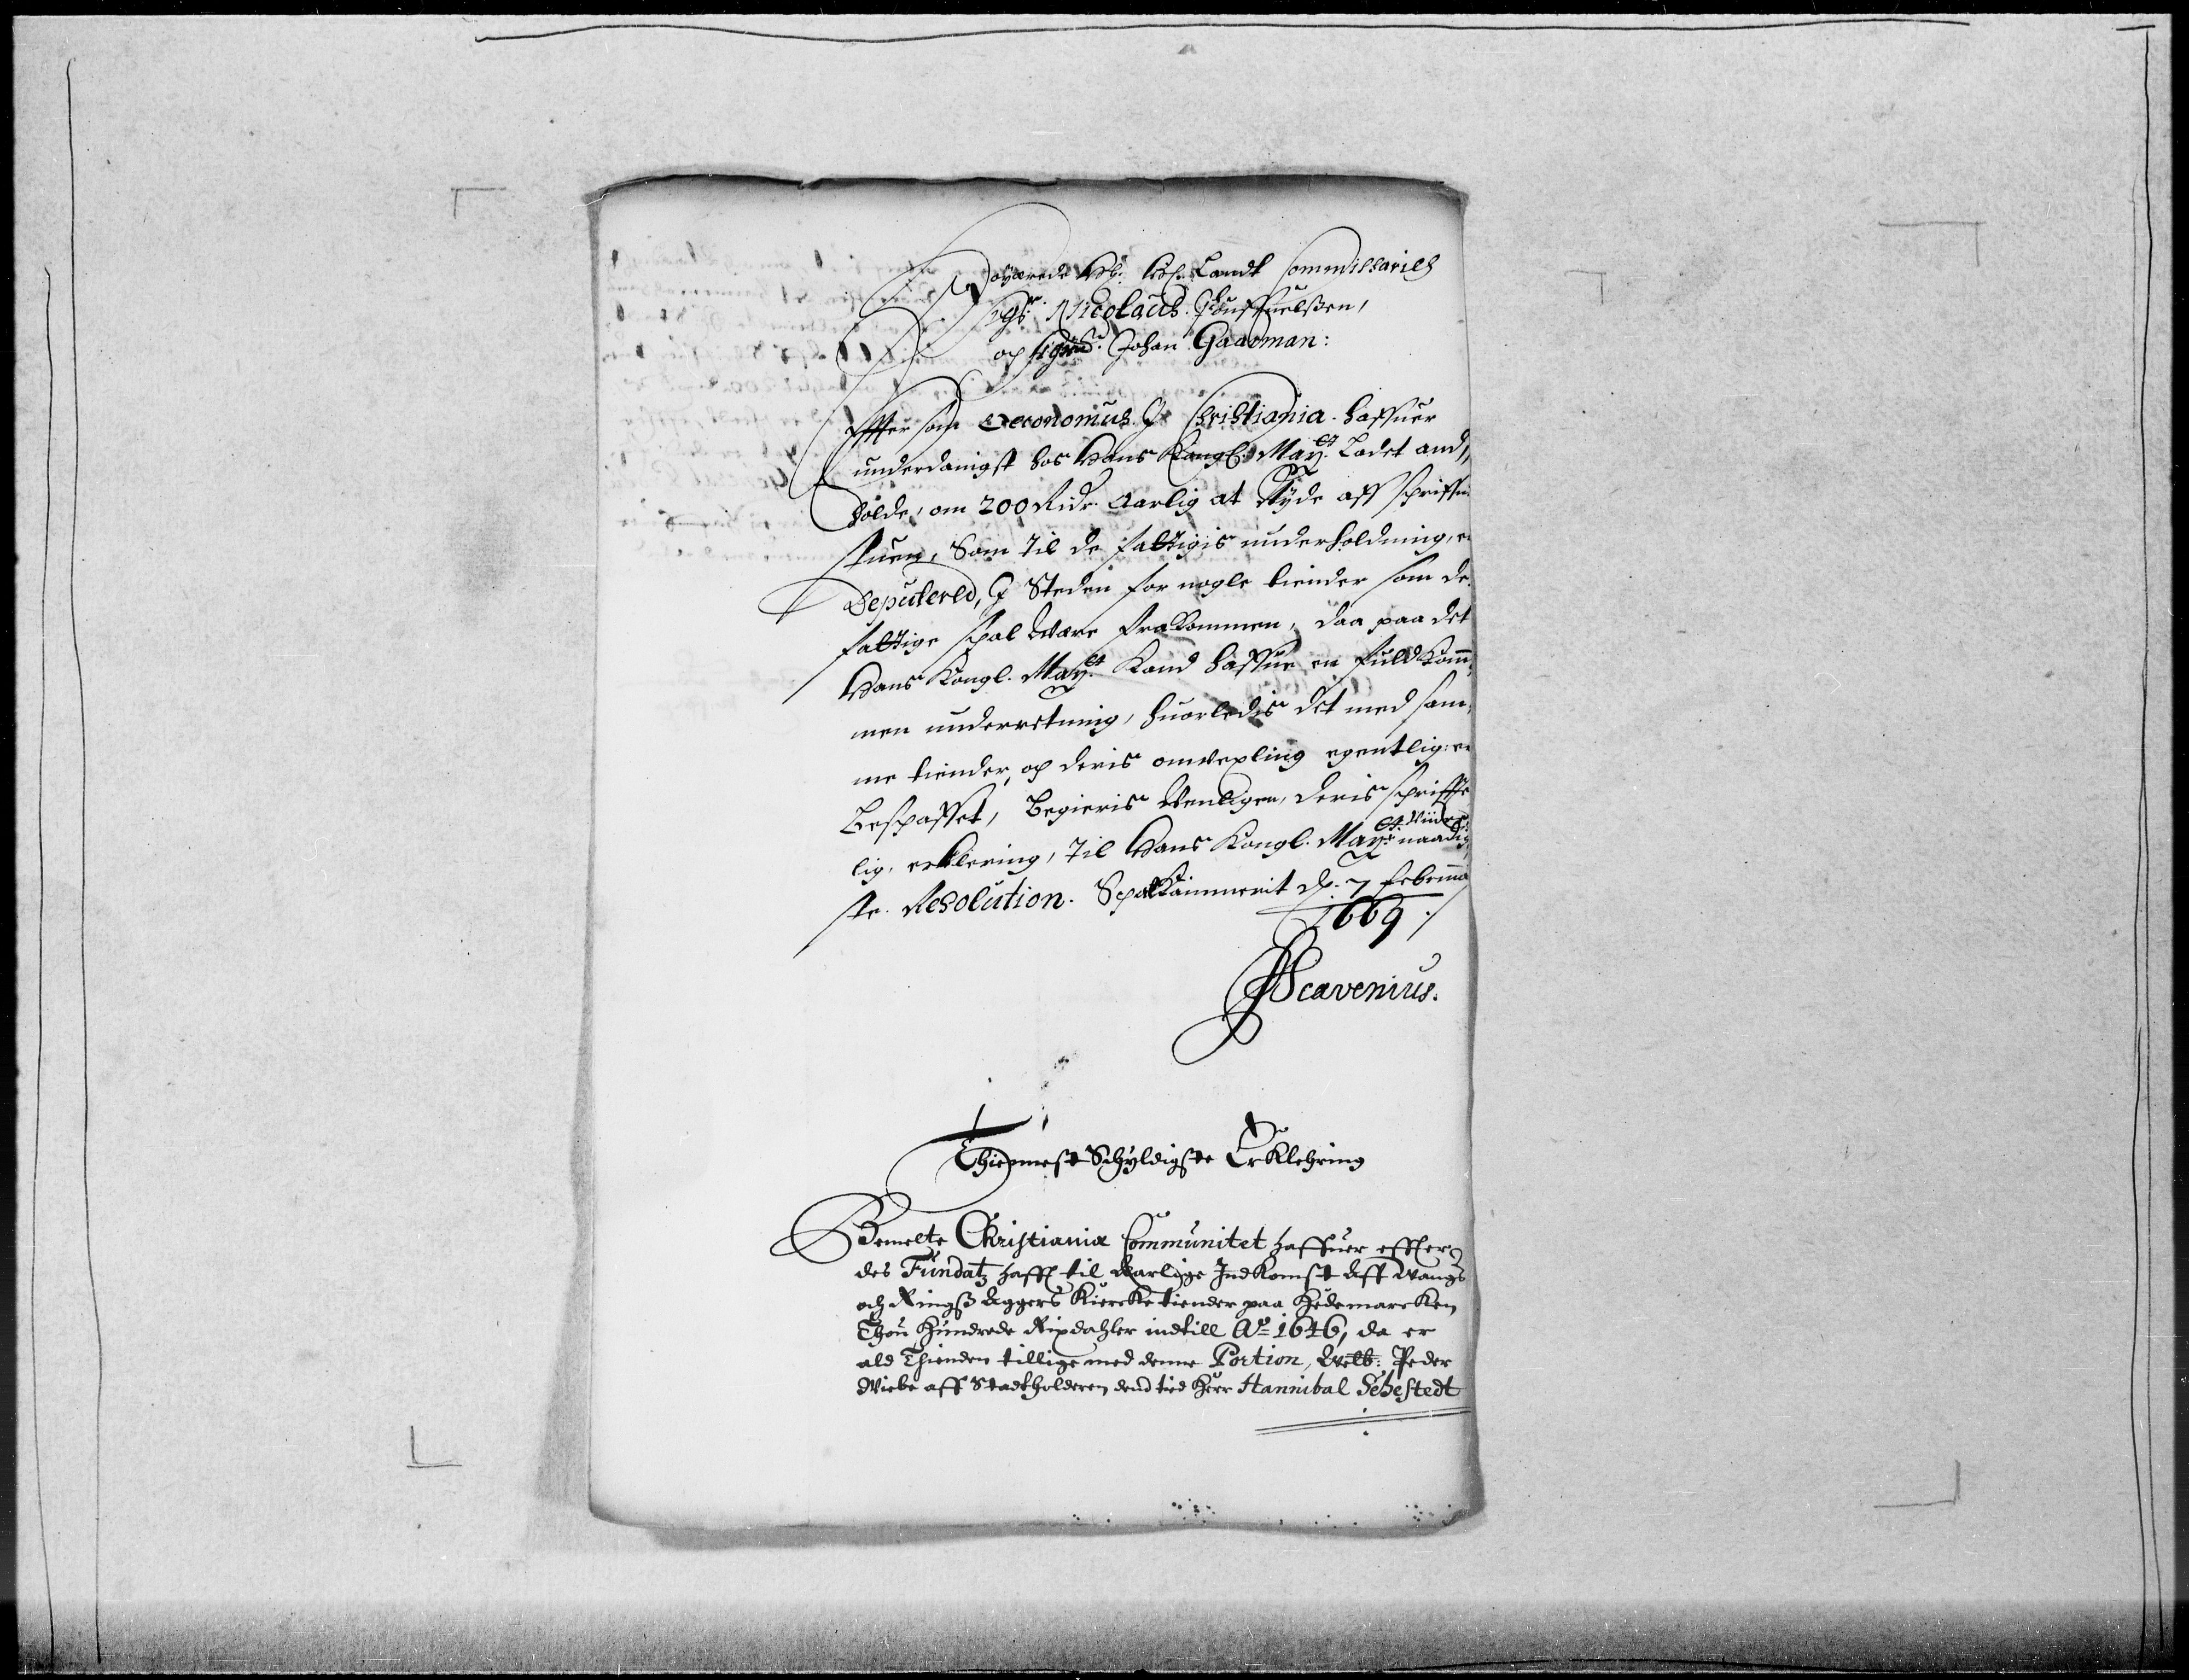 Høyærede Landt Commissarius
Sgr: Nicolaus Pouffuelssen,
och Sign: Johan Gaarman:
Effter som Oeconomus I Christiania haffuer
underdanigst hos Hans Kongl: May:et Ladet and,,
holde, om 200 Ridr. Aarlig at Nyde aff schriffue
stuen, Som til de fattigis underholdning, er
Deputered, I Steden for nogle tiender som de
fattige schal være frakommen, daa paa det
Hans Kongl. May:et Kand haffue en fuldkom,
men underretning, huorledis det med sam,
me tiender, och deris omvexling egentlig er
beschaffet, Begieris venligen, deris schrifft
lig, erklering, til Hans Kongl. May:et viidere naadig,
ste Resolution. Schatkammerit d. 7 Februa
1669.
H Scavenius.
Thiennest Schyldigste Erklehring
Bemelte Christiania Communitet haffuer effter
des Fundatz hafft til Aarlige Indkomst Aff Wangs
och Ringsaggers Kiercke tiender paa Hedemarcken
Thou Hundrede Rixdahler indtill Ao 1646, da er
ald Thienden tillige med denne Portion, Velb: Peder
Wiebe aff Stadtholderen dend tied Herr Hannibal Sehestedt